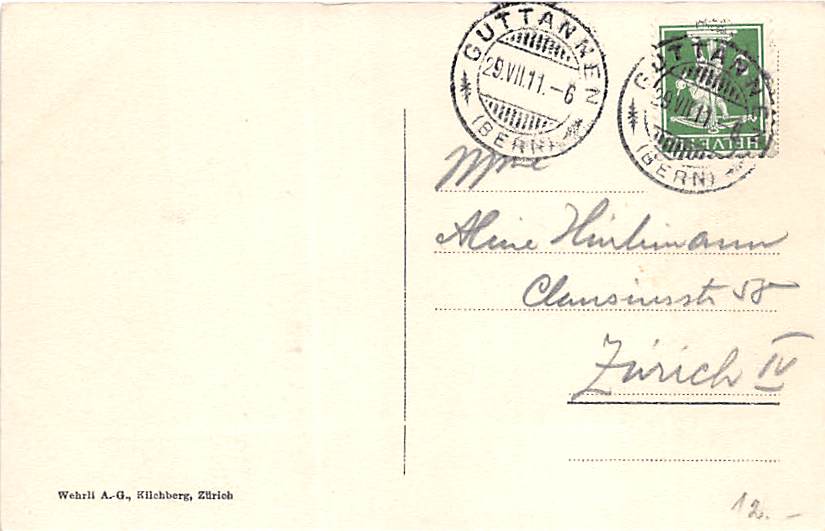 GUTTANNEN
29.VII.11.-6
(BERN)
GUTTANNEN
29.VII.11.-6
(BERN)
HELVETIA
Mme
Aline Hintermann
Clausiusstr 58
Zürich IV
Wehrli A.-G., Kilchberg, Zürich
12.-